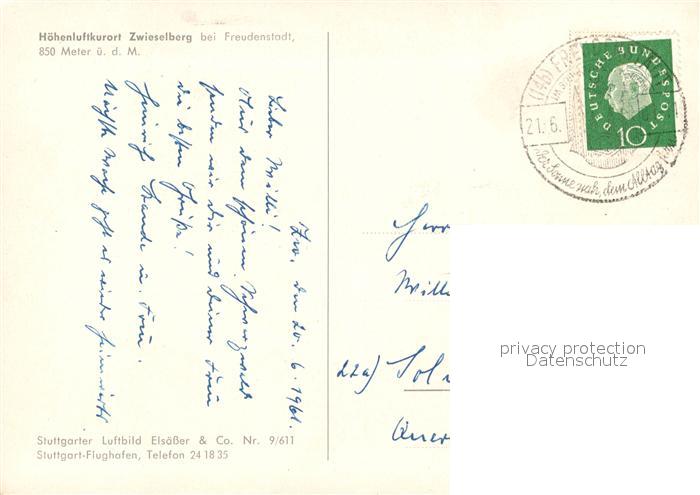 Höhenluftkurort Zwieselberg bei Freudenstadt,
850 Meter ü. d. M.
Zw, den 20. 6. 1961.
Lieber Willi!
Aus dem schönen Schwarzwald
senden wir dir und deiner Frau
die besten Grüße!
Heinrich u. Frau.
Nächste Woche geht es wieder heimwärts
Stuttgarter Luftbild Elsäßer & Co. Nr. 9/611
Stuttgart-Flughafen, Telefon 24 18 35
DEUTSCHE BUNDESPOST
10
(14b)
21. 6.
Der Sonne nah, dem Alltag fern
Herr
Will
22a) Sol
privacy protection
Datenschutz